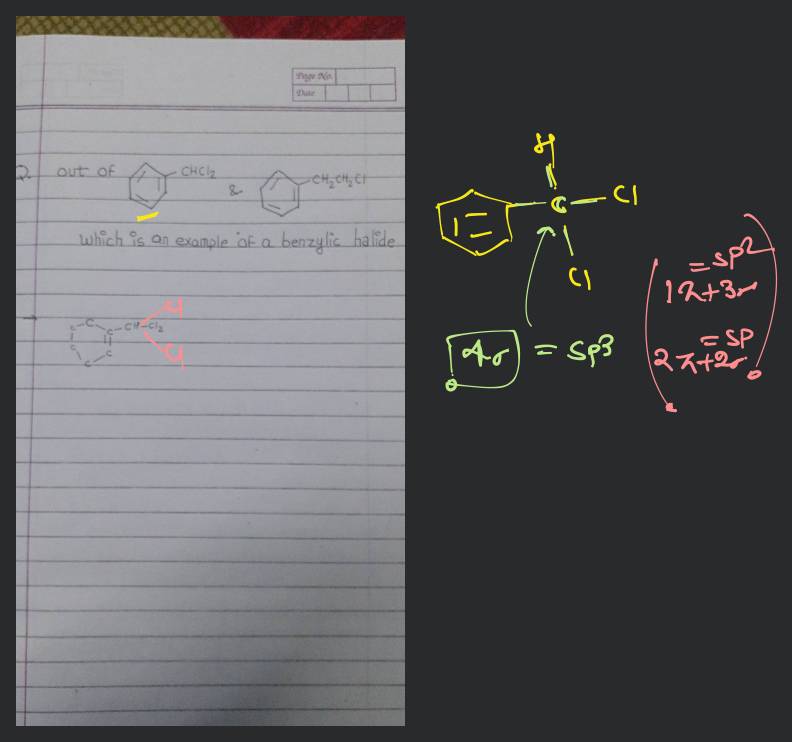 Page No.
Date
Q. out of CHCl2 & CH2CH2Cl
which is an example of a benzylic halide
Cl
C C CH-Cl2
C C
C C
Cl
H
C Cl
Cl
4σ = sp3
= sp2
1π+3σ
= sp
2π+2σ